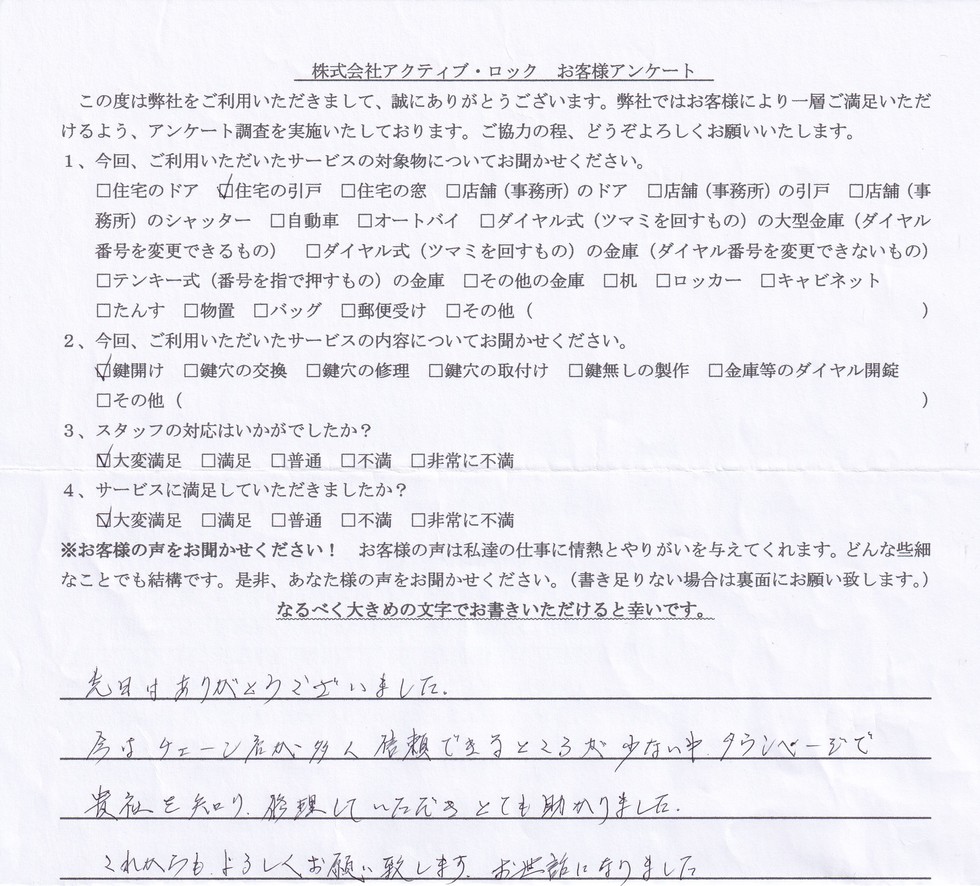 株式会社アクティブ・ロック　お客様アンケート
この度は弊社をご利用いただきまして、誠にありがとうございます。弊社ではお客様により一層ご満足いただ
けるよう、アンケート調査を実施いたしております。ご協力の程、どうぞよろしくお願いいたします。
1、今回、ご利用いただいたサービスの対象物についてお聞かせください。
□住宅のドア　☑住宅の引戸　□住宅の窓　□店舗（事務所）のドア　□店舗（事務所）の引戸　□店舗（事
務所）のシャッター　□自動車　□オートバイ　□ダイヤル式（ツマミを回すもの）の大型金庫（ダイヤル
番号を変更できるもの）　□ダイヤル式（ツマミを回すもの）の金庫（ダイヤル番号を変更できないもの）
□テンキー式（番号を指で押すもの）の金庫　□その他の金庫　□机　□ロッカー　□キャビネット
□たんす　□物置　□バッグ　□郵便受け　□その他（　　　）
2、今回、ご利用いただいたサービスの内容についてお聞かせください。
☑鍵開け　□鍵穴の交換　□鍵穴の修理　□鍵穴の取付け　□鍵無しの製作　□金庫等のダイヤル開錠
□その他（　　　）
3、スタッフの対応はいかがでしたか？
☑大変満足　□満足　□普通　□不満　□非常に不満
4、サービスに満足していただきましたか？
☑大変満足　□満足　□普通　□不満　□非常に不満
※お客様の声をお聞かせください！　お客様の声は私達の仕事に情熱とやりがいを与えてくれます。どんな些細
なことでも結構です。是非、あなた様の声をお聞かせください。（書き足りない場合は裏面にお願い致します。）
なるべく大きめの文字でお書きいただけると幸いです。
先日はありがとうございました。
今はチェーン店が多く信頼できるところが少ない中、タウンページで
貴社を知り、修理していただきとても助かりました。
これからも、よろしくお願い致します。お世話になりました